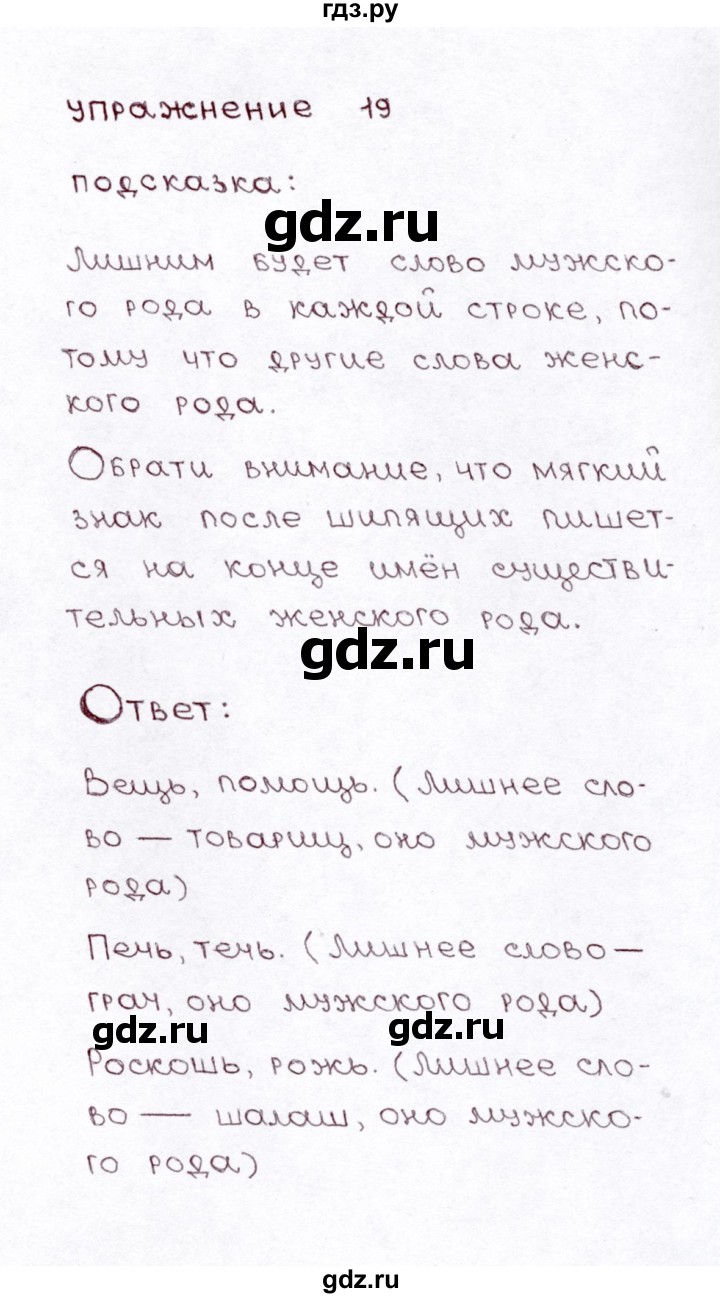 гдз.ру
упражнение 19
подсказка:
gdz.ru
Лишним будет слово мужско-
го рода в каждой строке, по-
тому что другие слова женс-
кого рода.
Обрати внимание, что мягкий
знак после шипящих пишет-
ся на конце имён существи-
тельных женского рода.
gdz.ru
Ответ:
Вещь, помощь. (Лишнее сло-
во — товарищ, оно мужского
рода)
Печь, течь. (Лишнее слово —
грач, оно мужского рода)
gdz.ru gdz.ru
Роскошь, рожь. (Лишнее сло-
во — шалаш, оно мужско-
го рода)
gdz.ru